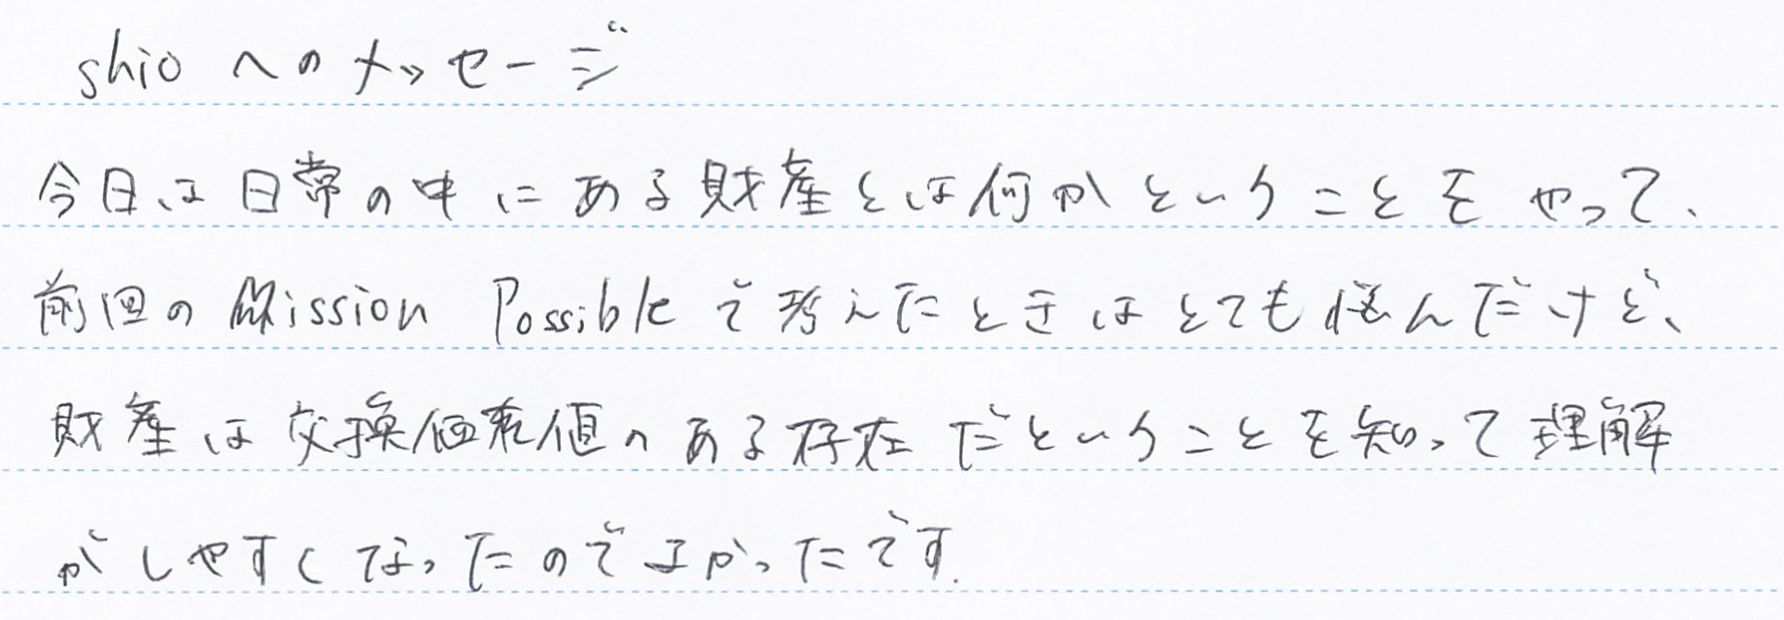 shioへのメッセージ
今日は日常の中にある財産とは何かということをやって、
前回のMission Possibleで考えたときはとても悩んだけど、
財産は交換価値のある存在だということを知って理解
がしやすくなったのでよかったです.